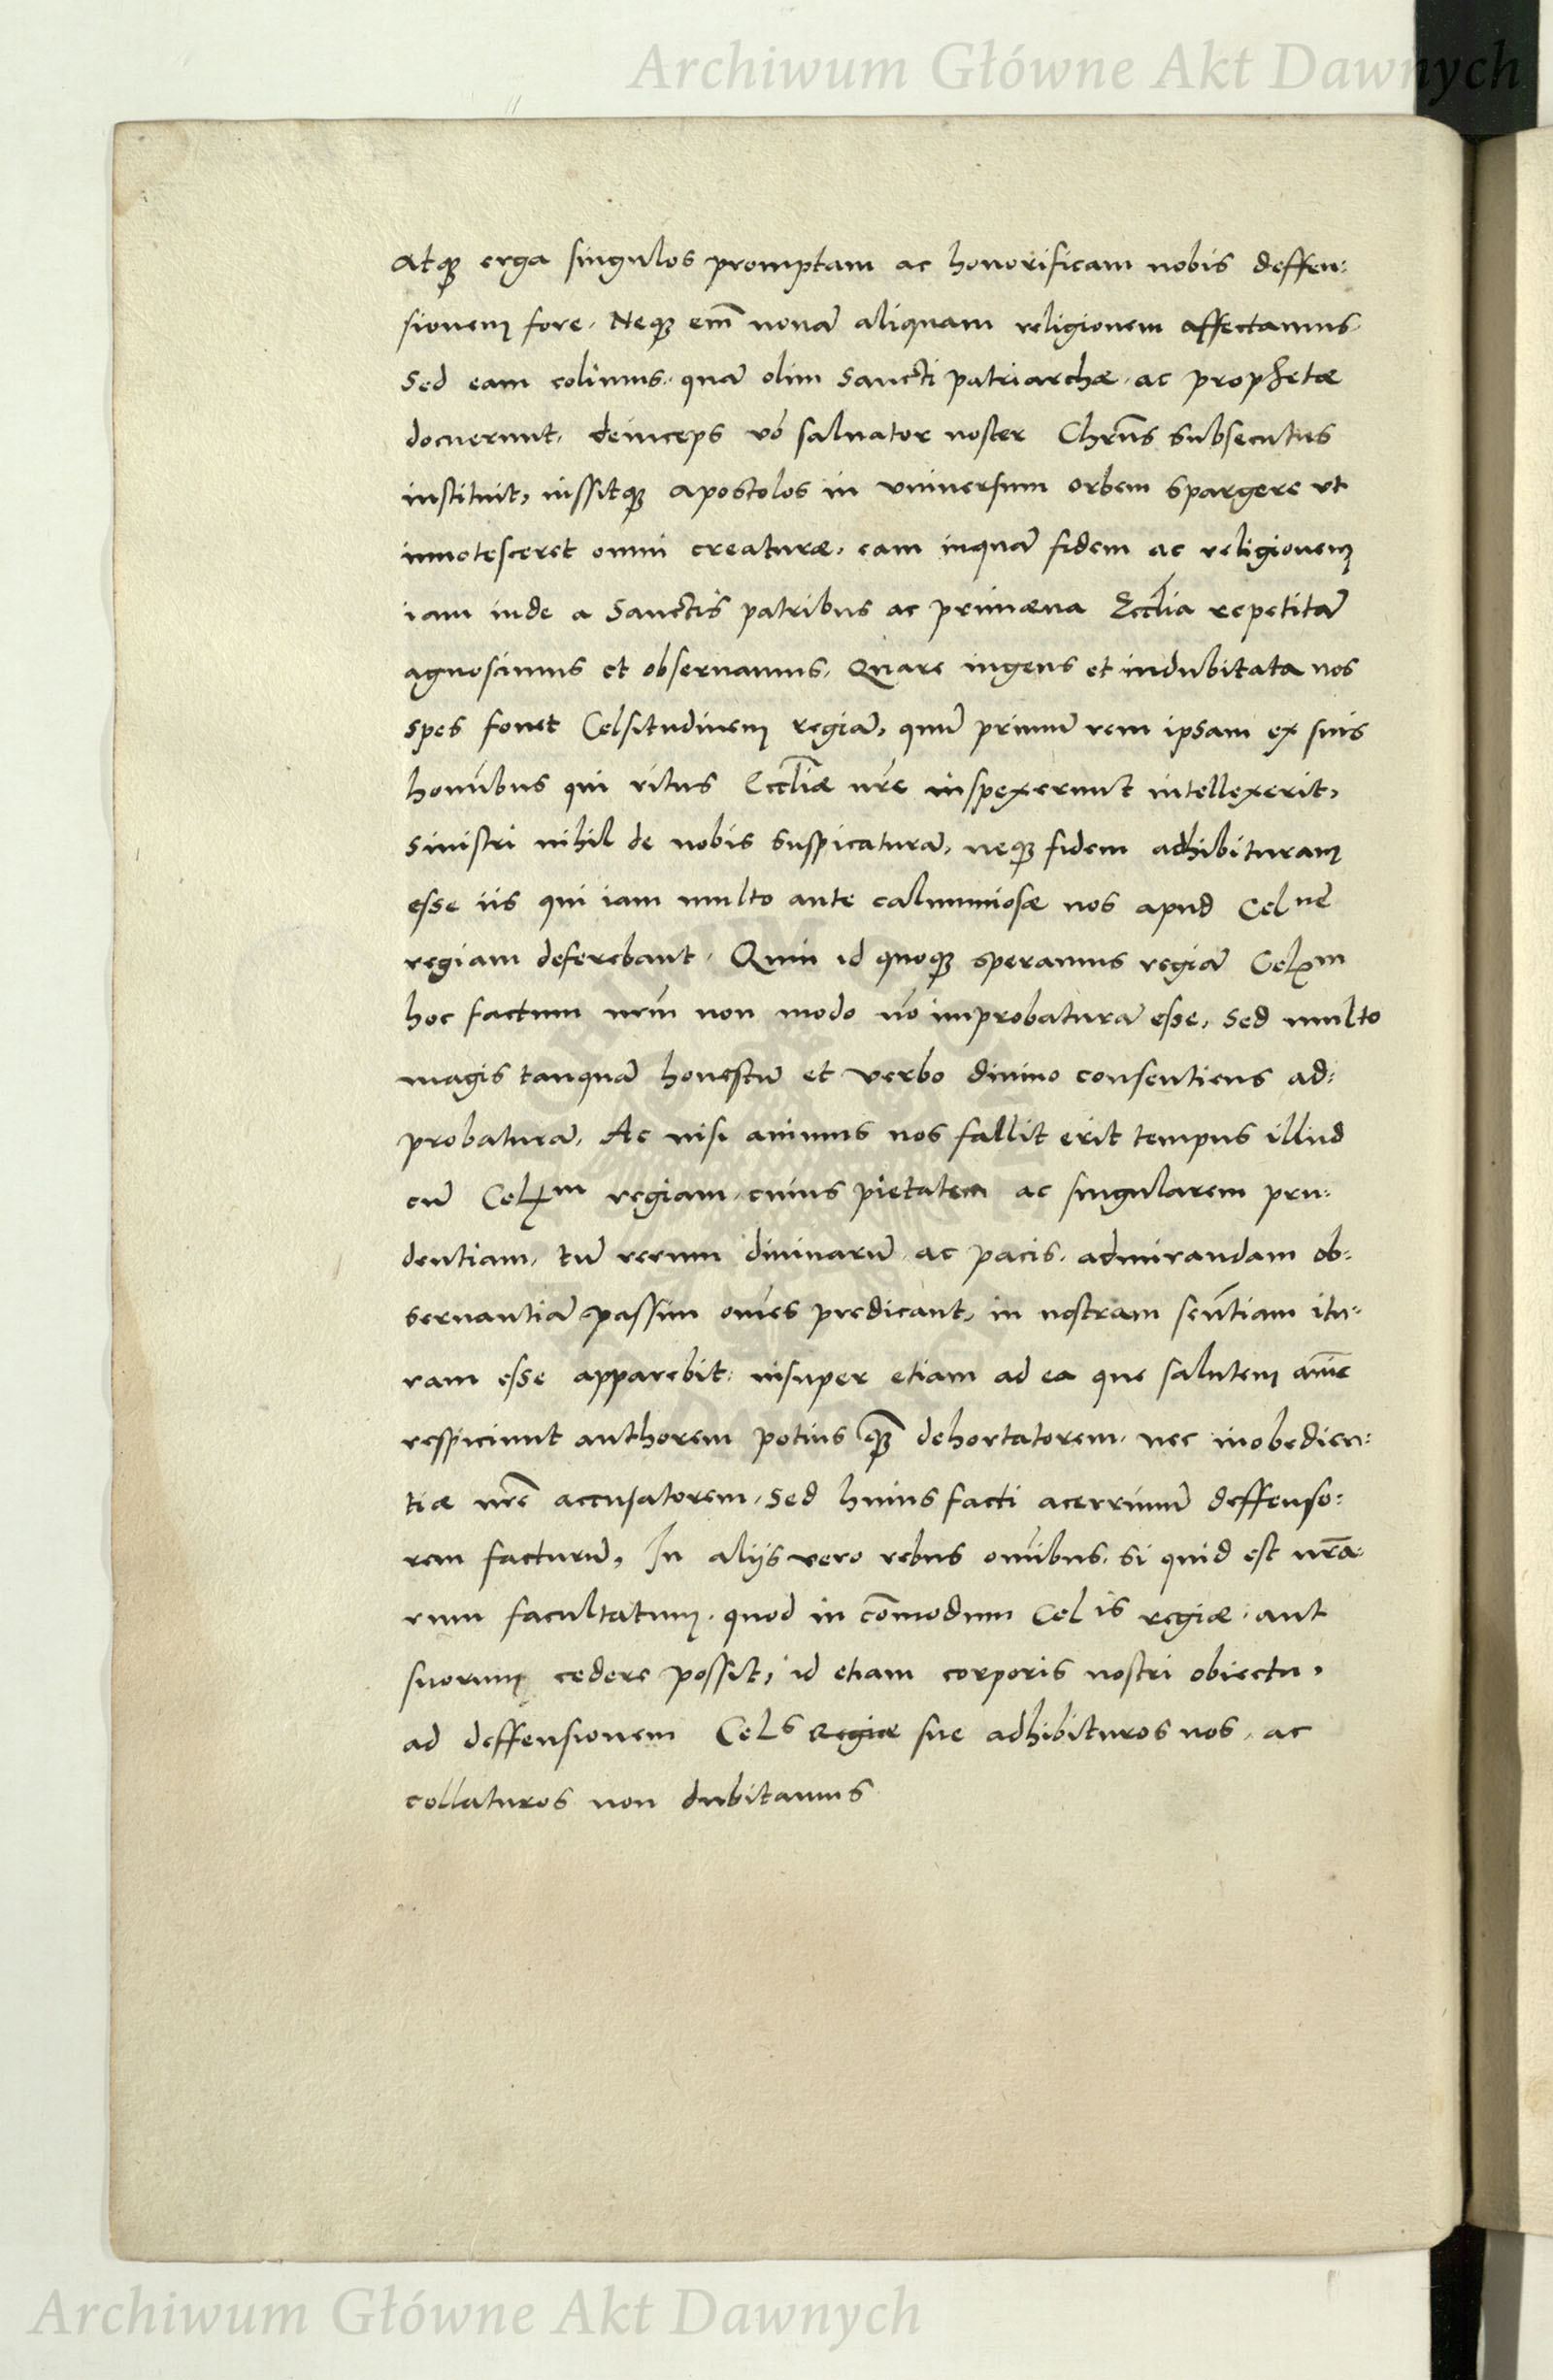 Archiwum Główne Akt Dawnych
Atqꝫ erga singulos promptam ac honorificam nobis deffen:
sionem fore. Neqꝫ em̄ nouā aliquam religionem affectamus.
Sed eam colimus. quā olim Sancti patriarchæ. ac prophetæ
docuerunt. deinceps vo saluator noster Chrūs subsecutus
instituit, iussitqꝫ apostolos in vniuersum orbem spargere vt
innotesceret omni creaturæ. eam inquā fidem ac religionem
iam inde a Sanctis patribus ac primæua Eccl̄ia repetitā
agnoscimus et obseruamus. Quare ingens et indubitata nos
spes fouet Celsitudinem regiā, quū primū rem ipsam ex suis
homībus qui ritus Eccl̄iæ nr̄e inspexerunt intellexerit,
sinistri nihil de nobis suspicaturā, neqꝫ fidem adhibituram
esse iis qui iam multo ante calumniosæ nos apud Celnē
regiam deferebant. Quin id quoqꝫ speramus regiā Celxm
hoc factum nr̄m non modo nō improbaturā esse, sed multo
magis tanquā honestū et verbo diuino consentiens ad:
probaturā. Ac nisi animus nos fallit erit tempus illud
cū Celxm regiam. cuius pietatem ac singularem pru:
dentiam. tū rerum diuinarū. ac pacis. admirandam ob:
seruantiā passim om̄es predicant, in nostram sen̄tiam itu:
ram esse apparebit: insuper etiam ad ea que salutem anīe
respiciunt authorem potius qꝫ̄ dehortatorem. nec inobedien:
tiæ nr̄e accusatorem, sed huius facti acerrimū deffenso:
rem facturū, In alijs vero rebus om̄ibus. si quid est nr̄a:
rum facultatum. quod in cōmodum Celis regiæ. aut
suorum cedere possit, id etiam corporis nostri obiectu,
ad deffensionem Cels Regiæ sue adhibituros nos. ac
collaturos non dubitamus
Archiwum Główne Akt Dawnych